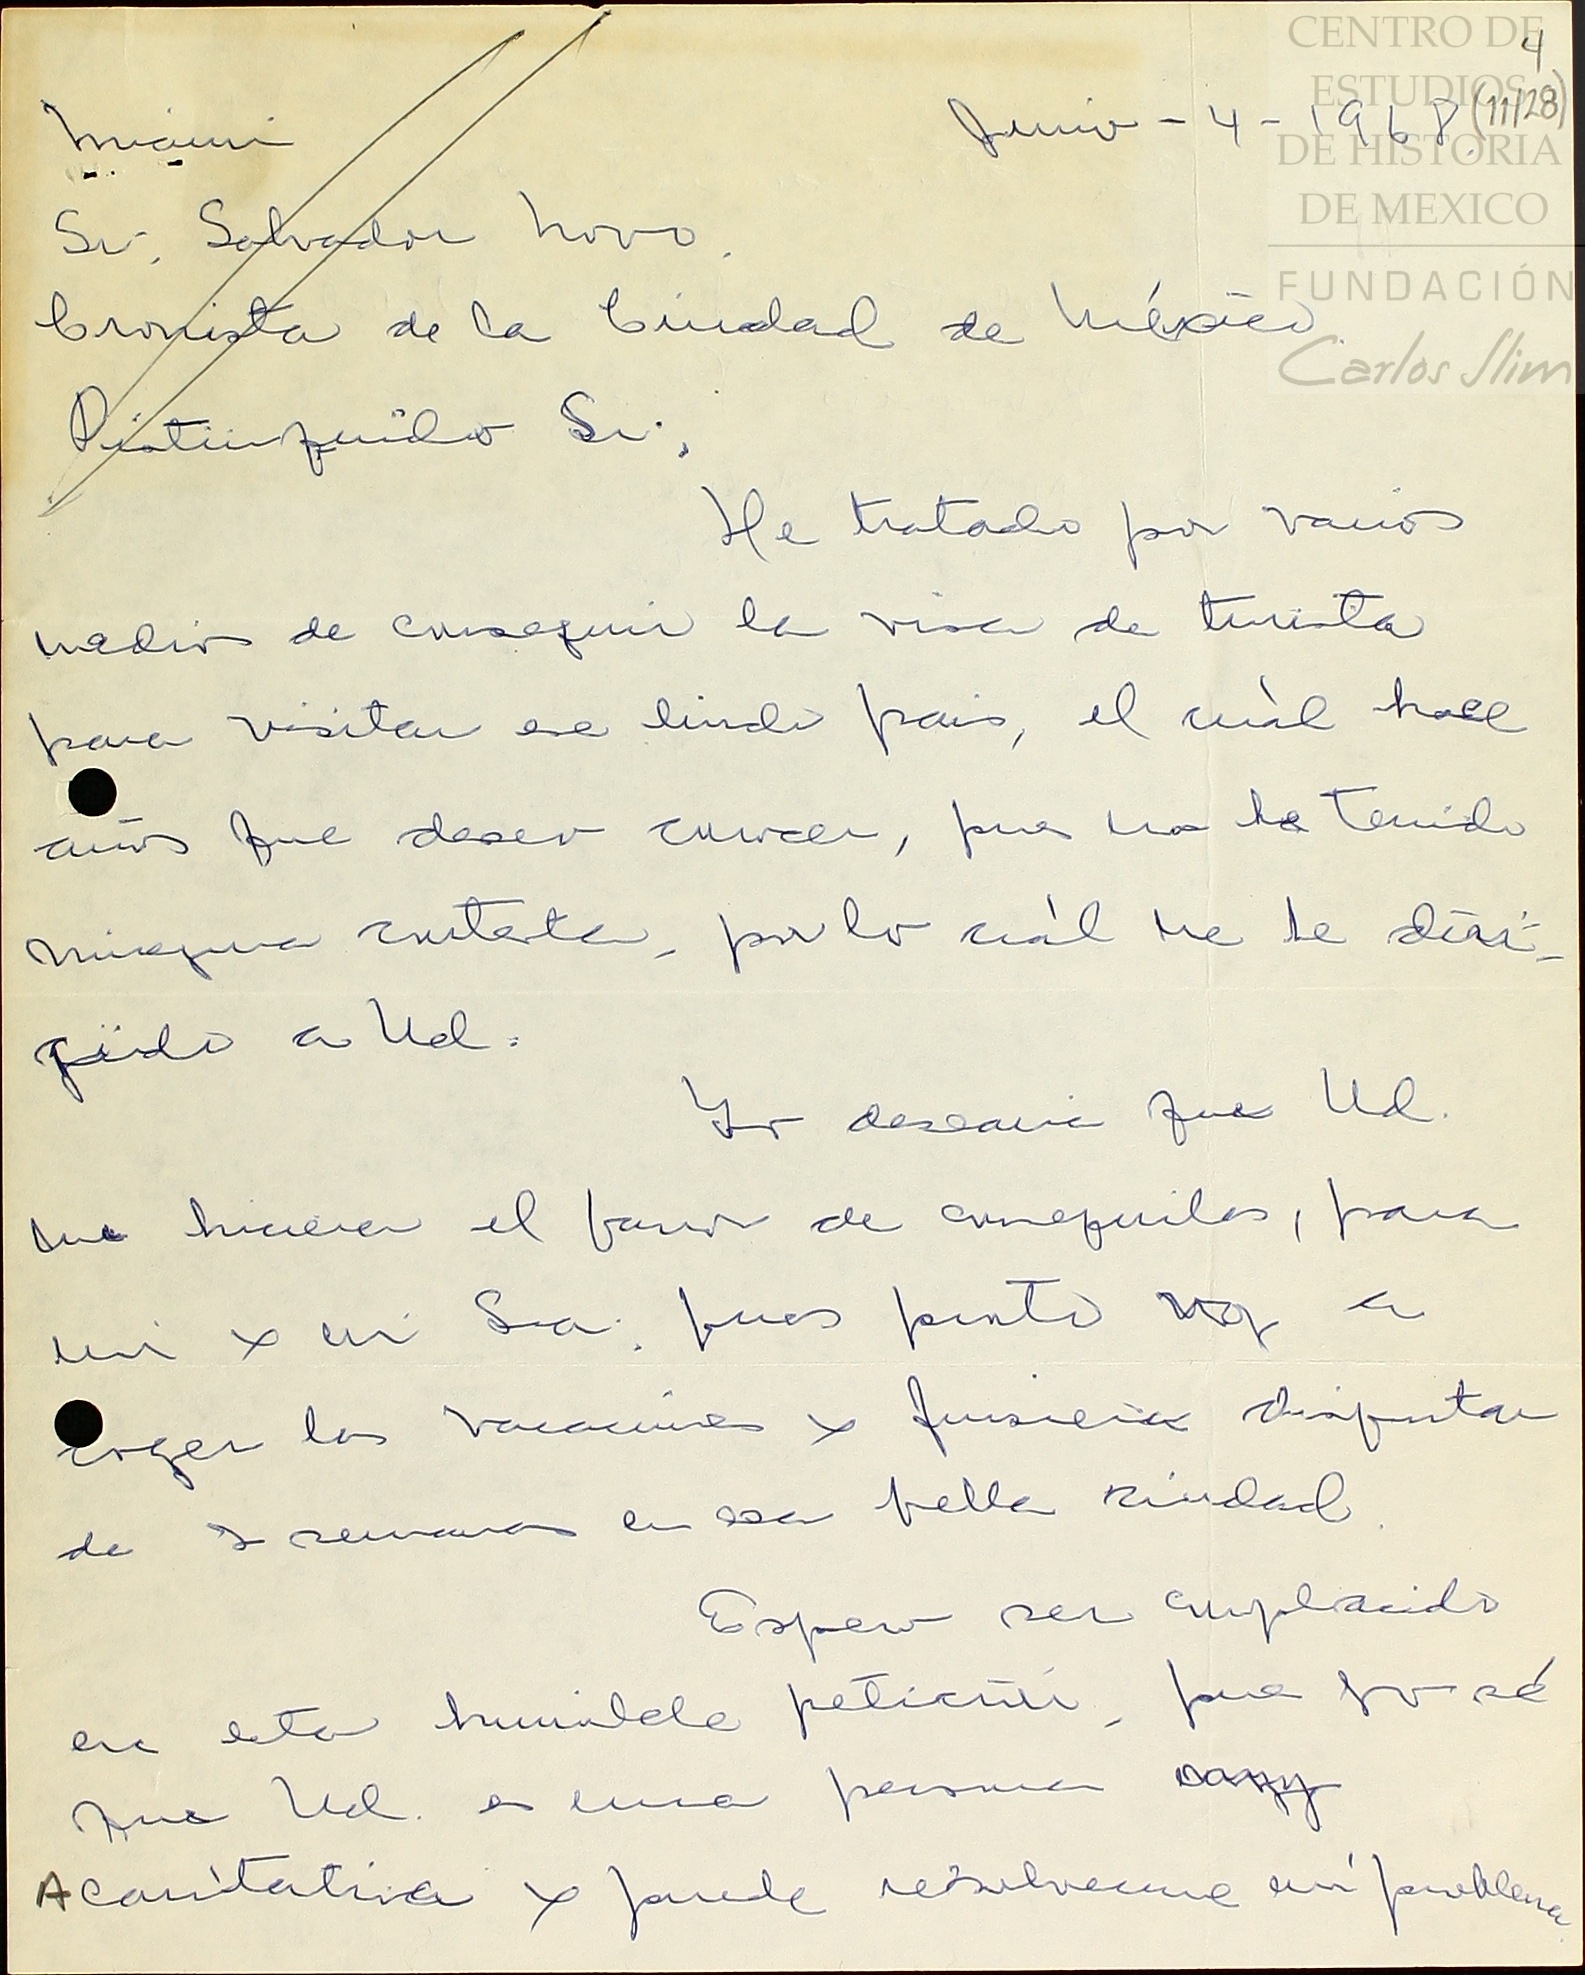 CENTRO DE
ESTUDIOS
DE HISTORIA
DE MEXICO
FUNDACIÓN
Carlos Slim
4
(11/28)
Miami Junio - 4 - 1968
Sr. Salvador Novo.
Cronista de la Ciudad de México
Distinguido Sr.,
He tratado por varios
medios de conseguir la visa de turista
para visitar ese lindo pais, el cuál hace
años que deseo conocer, pues no he tenido
ninguna contesta, por lo cuál me he diri-
gido a Ud.
Yo desearia que Ud.
me hiciera el favor de conseguirlas, para
mi y mi Sra. pues pronto voy a
coger las vacaciones y quisiera disfrutar
de 2 semanas en esa bella ciudad.
Espero ser complacido
en esta humilde petición, que yo sé
que Ud. es una persona
caritativa y puede resolverme mi problema